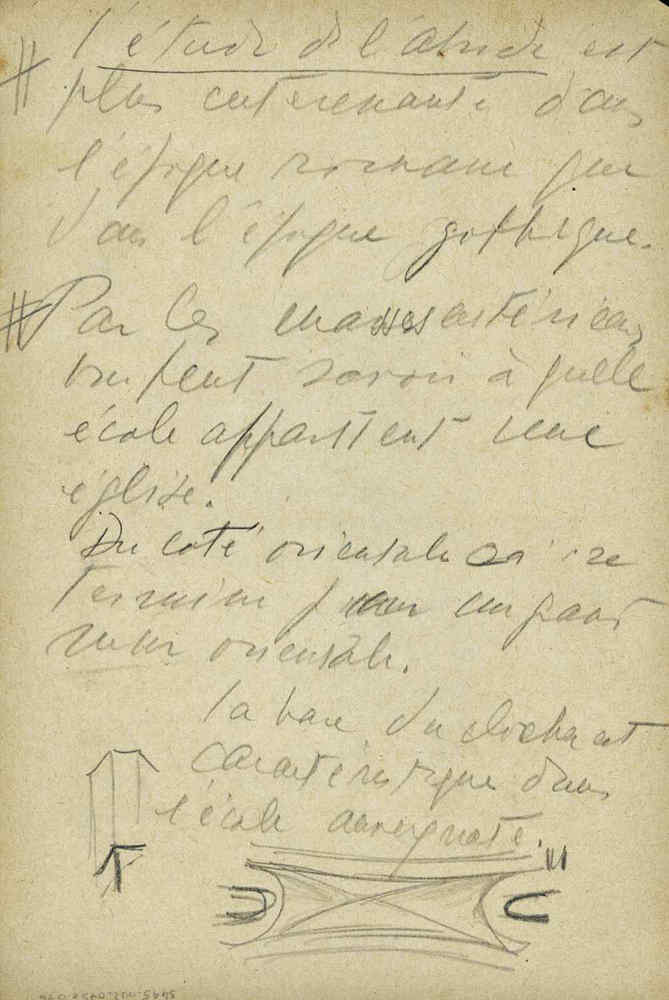 l'étude de l'abside est
plus interenante dans
l'époque romane que
dans l'époque gothique.
Par les masses extérieurs
on peut savoir à quelle
école appartient une
église.
Du coté orientale se
termine par un grand
mur orientale.
la base du clocher est
caractéristique dans
l'école auvergnate.